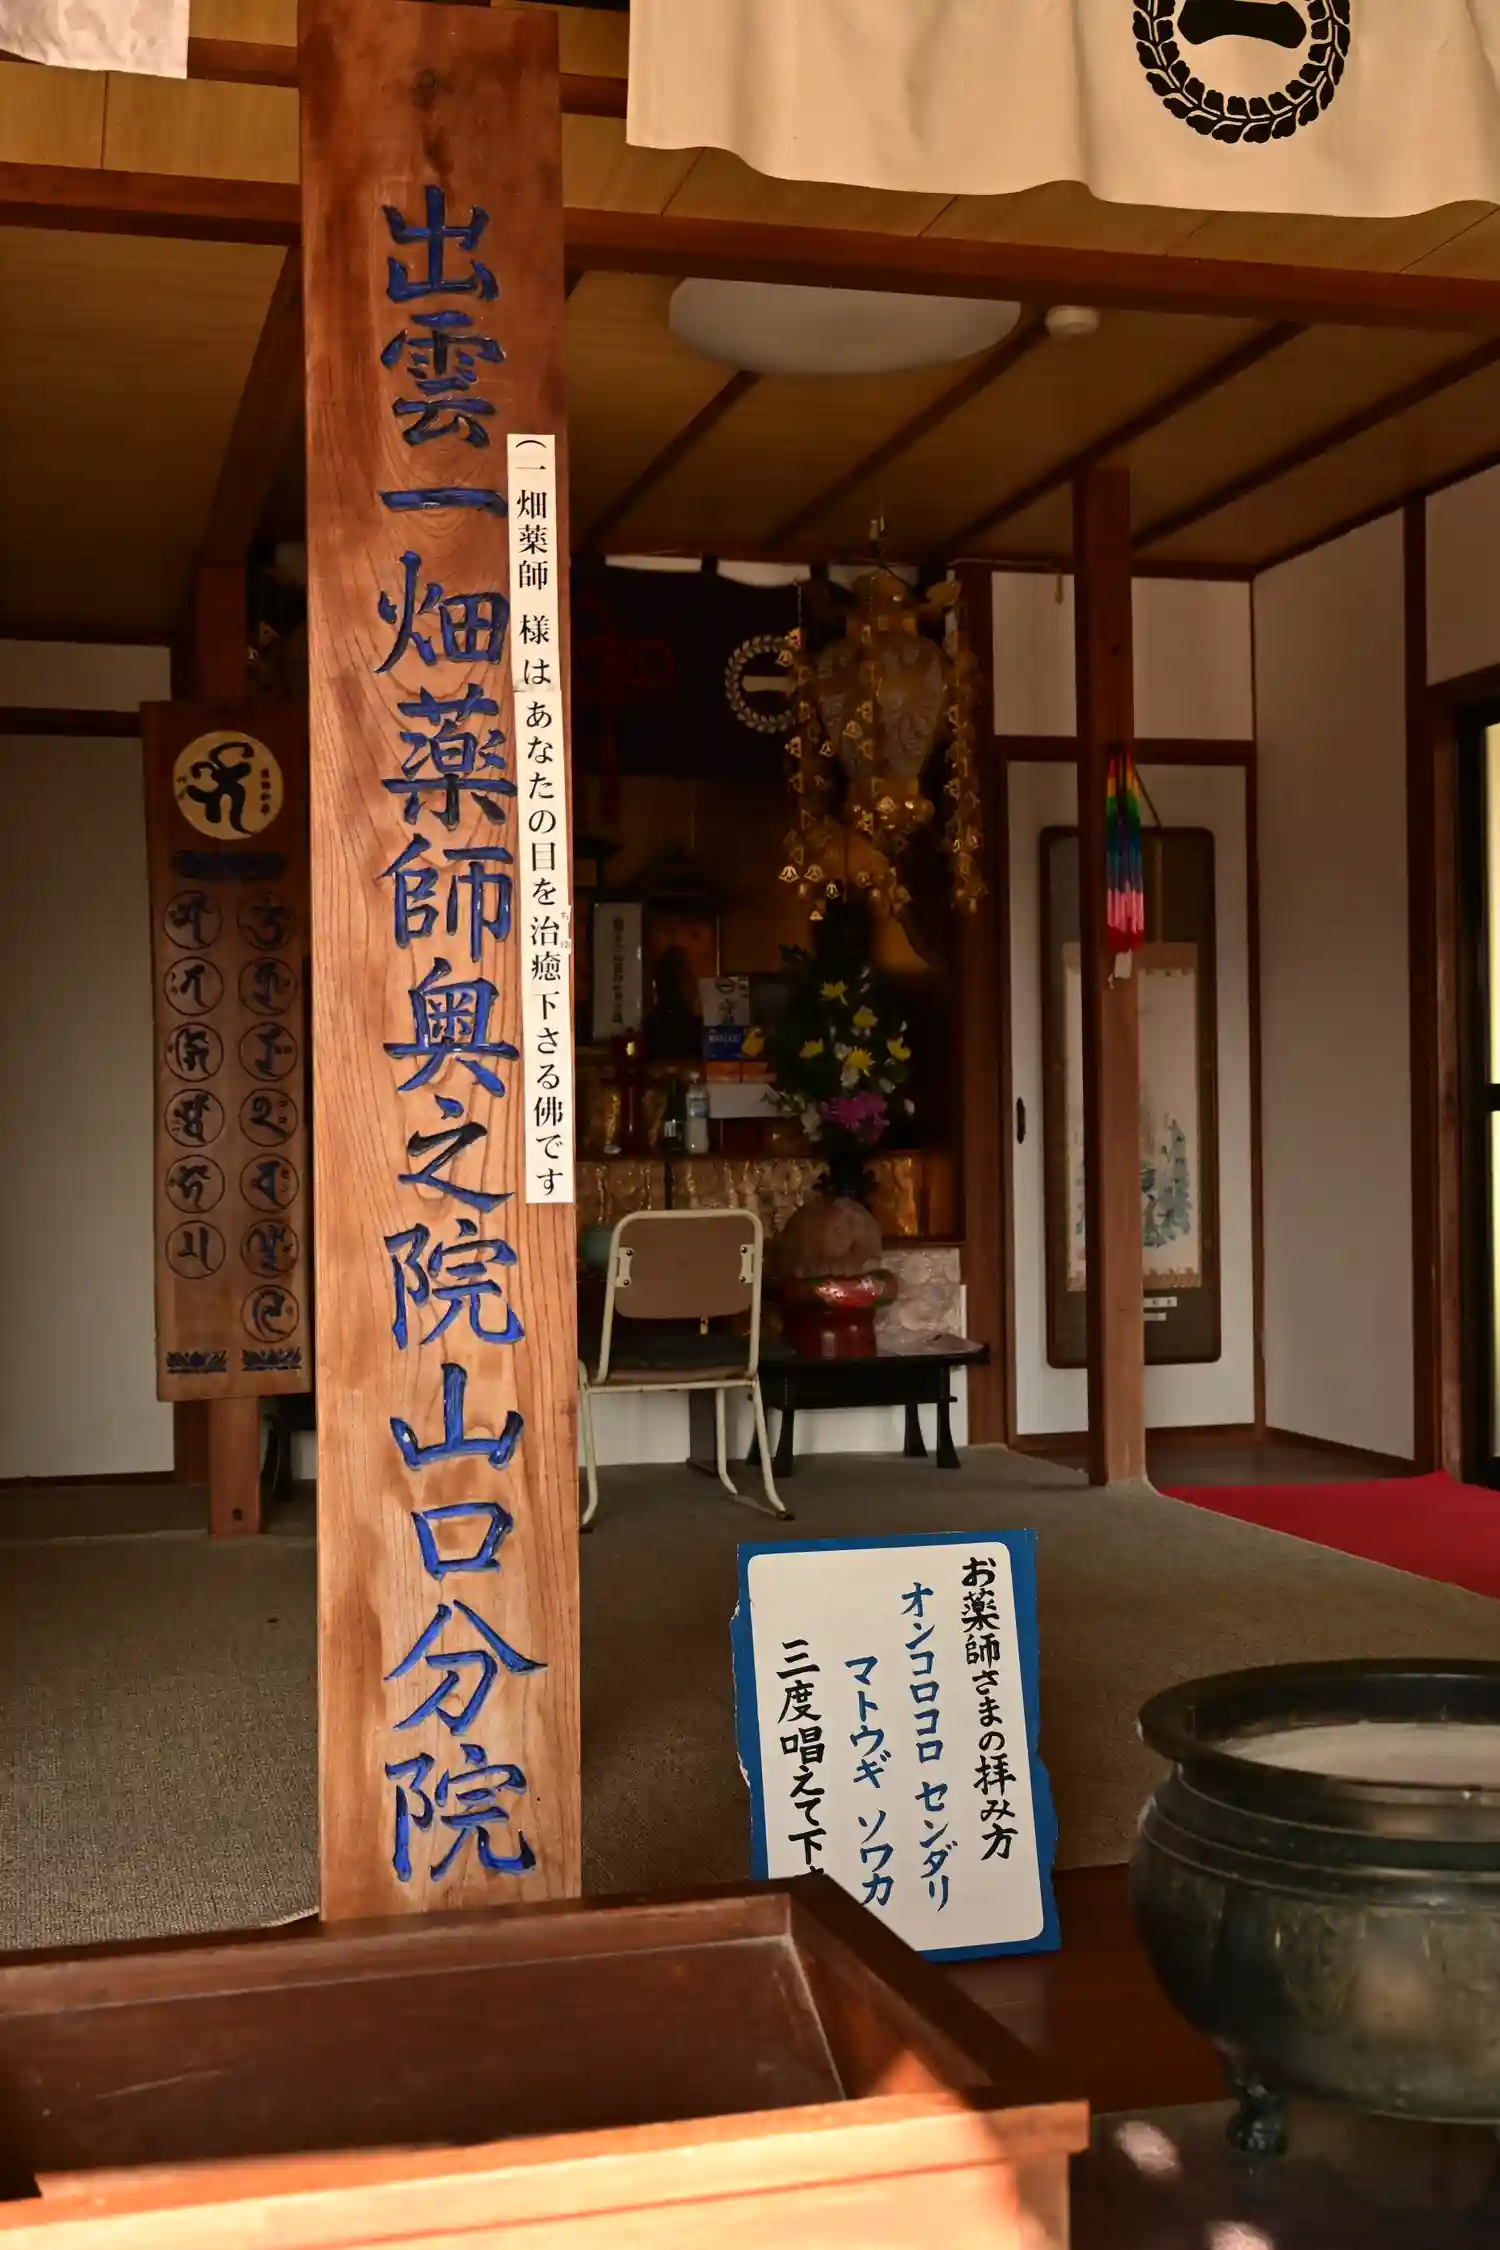 出雲一畑薬師奥之院山口分院
(一畑薬師 様はあなたの目を治癒下さる佛です
お薬師さまの拝み方
オンコロコロ センダリ
マトウギ ソワカ
三度唱えて下